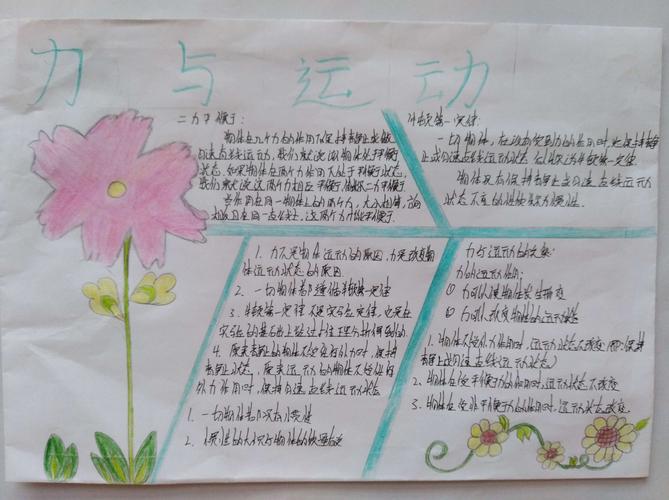 力与运动
二力平衡:
物体在几个力的作用下保持静止或做
匀速直线运动,我们就说该物体处于平衡
状态,如果物体在两个力作用下处于平衡状态,
我们就说这两个力相互平衡,二力平衡
当作用在同一物体上的两个力,大小相等,方向
相反且在同一直线上,这两个力才能平衡.
牛顿第一定律:
一切物体,在没有受到力的作用时,总保持静
止或匀速直线运动状态
物体具有保持静止或匀速直线运动
状态不变的性质称为惯性.
1. 力不是物体运动的原因,力是改变物
体运动状态的原因
2. 一切物体都遵循牛顿第一定律
3. 牛顿第一定律不是实验定律,它是在
实验的基础上经过推理分析得到的.
4. 原来静止的物体不受任何外力时,保持
静止状态,原来运动的物体不受任何
外力作用时,保持匀速直线运动状态
1. 一切物体都具有惯性
2. 惯性的大小与物体的质量有关
力与运动的关系:
力的运动作用:
① 力可以使物体发生形变
② 力可以改变物体的运动状态
1. 物体不受外力作用时,运动状态不改变(即:保持
静止或匀速直线运动状态)
2. 物体在受平衡力的作用时,运动状态不改变
3. 物体在受非平衡力的作用时,运动状态改变.